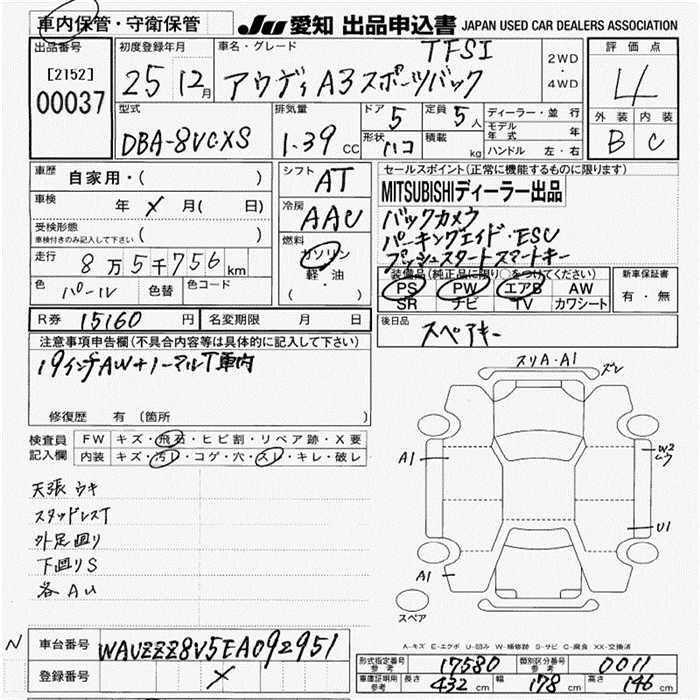 車内保管・守衛保管 JU 愛知 出品申込書 JAPAN USED CAR DEALERS ASSOCIATION
出品番号 初度登録年月 車名・グレード TFSI 2WD・4WD 評価点
[2152] 25 12月 アウディA3スポーツバック 4
00037
型式 排気量 ドア 5 定員 5人 ディーラー・並行 外装 内装
DBA-8VCXS 1.39CC 形状 ハコ 積載 kg モデル年式 年 B C
ハンドル 左・右
車歴 自家用・( ) シフト AT セールスポイント(正常に機能するものに限ります)
車検 年 X 月( 日) 冷房 AAC MITSUBISHIディーラー出品
受検形態 ( ) バックカメラ
車検付きのみ記入して下さい 燃料 ガソリン パーキングエイド・ESC
走行 8万5千756km 軽・油 プッシュスタートスマートキー
( ) 装備品(純正品に限り○をつけてください) 新車保証書
色 パール 色替 色コード PS PW エアB AW 有・無
SR ナビ TV カワシート
R券 15160円 名変期限 月 日 後日品 スペアキー
注意事項申告欄(不具合内容等は具体的に記入して下さい)
19インチAW+ノーマルT車内
修復歴 有(箇所 )
検査員 FW キズ・飛石・ヒビ割・リペア跡・X要
記入欄 内装 キズ・汚レ・コゲ・穴・スレ・キレ・破レ
スリA・A1 ズレ
A1 W2
U1
A1
天張ウキ
スタッドレスT
外足廻り
下廻りS
各AU
スペア
A-キズ E-エクボ U-凹み W-補修跡 S-サビ C-腐食 XX-交換済
N 車台番号 WAUZZZ8V5EA092951
登録番号 X
形式指定番号 参考 17580 類別区分番号 参考 0011
車庫証明用 参考 長さ 432cm 幅 178cm 高さ 146cm